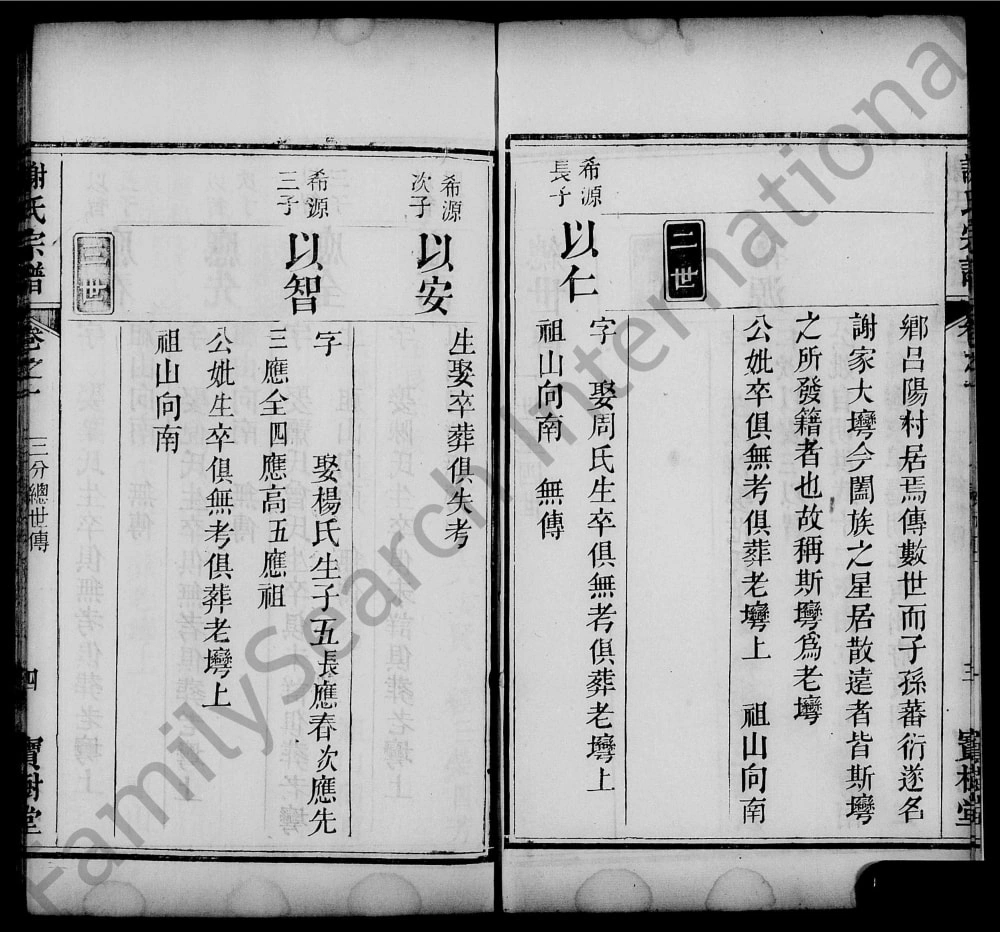 鄉呂陽村居焉傳數世而子孫蕃衍遂名
謝家大塆今闔族之星居散遠者皆斯塆
之所發籍者也故稱斯塆爲老塆
公妣卒俱無考俱葬老塆上 祖山向南
二世
希源
長子
以仁
字 娶周氏生卒俱無考俱葬老塆上
祖山向南 無傳
希源
次子
以安
生娶卒葬俱失考
希源
三子
以智
字 娶楊氏生子五長應春次應先
三應全四應高五應祖
公妣生卒俱無考俱葬老塆上
祖山向南
三世
謝氏宗譜
卷之一
三分總世傳
四
寶樹堂
三
寶樹堂
FamilySearch International